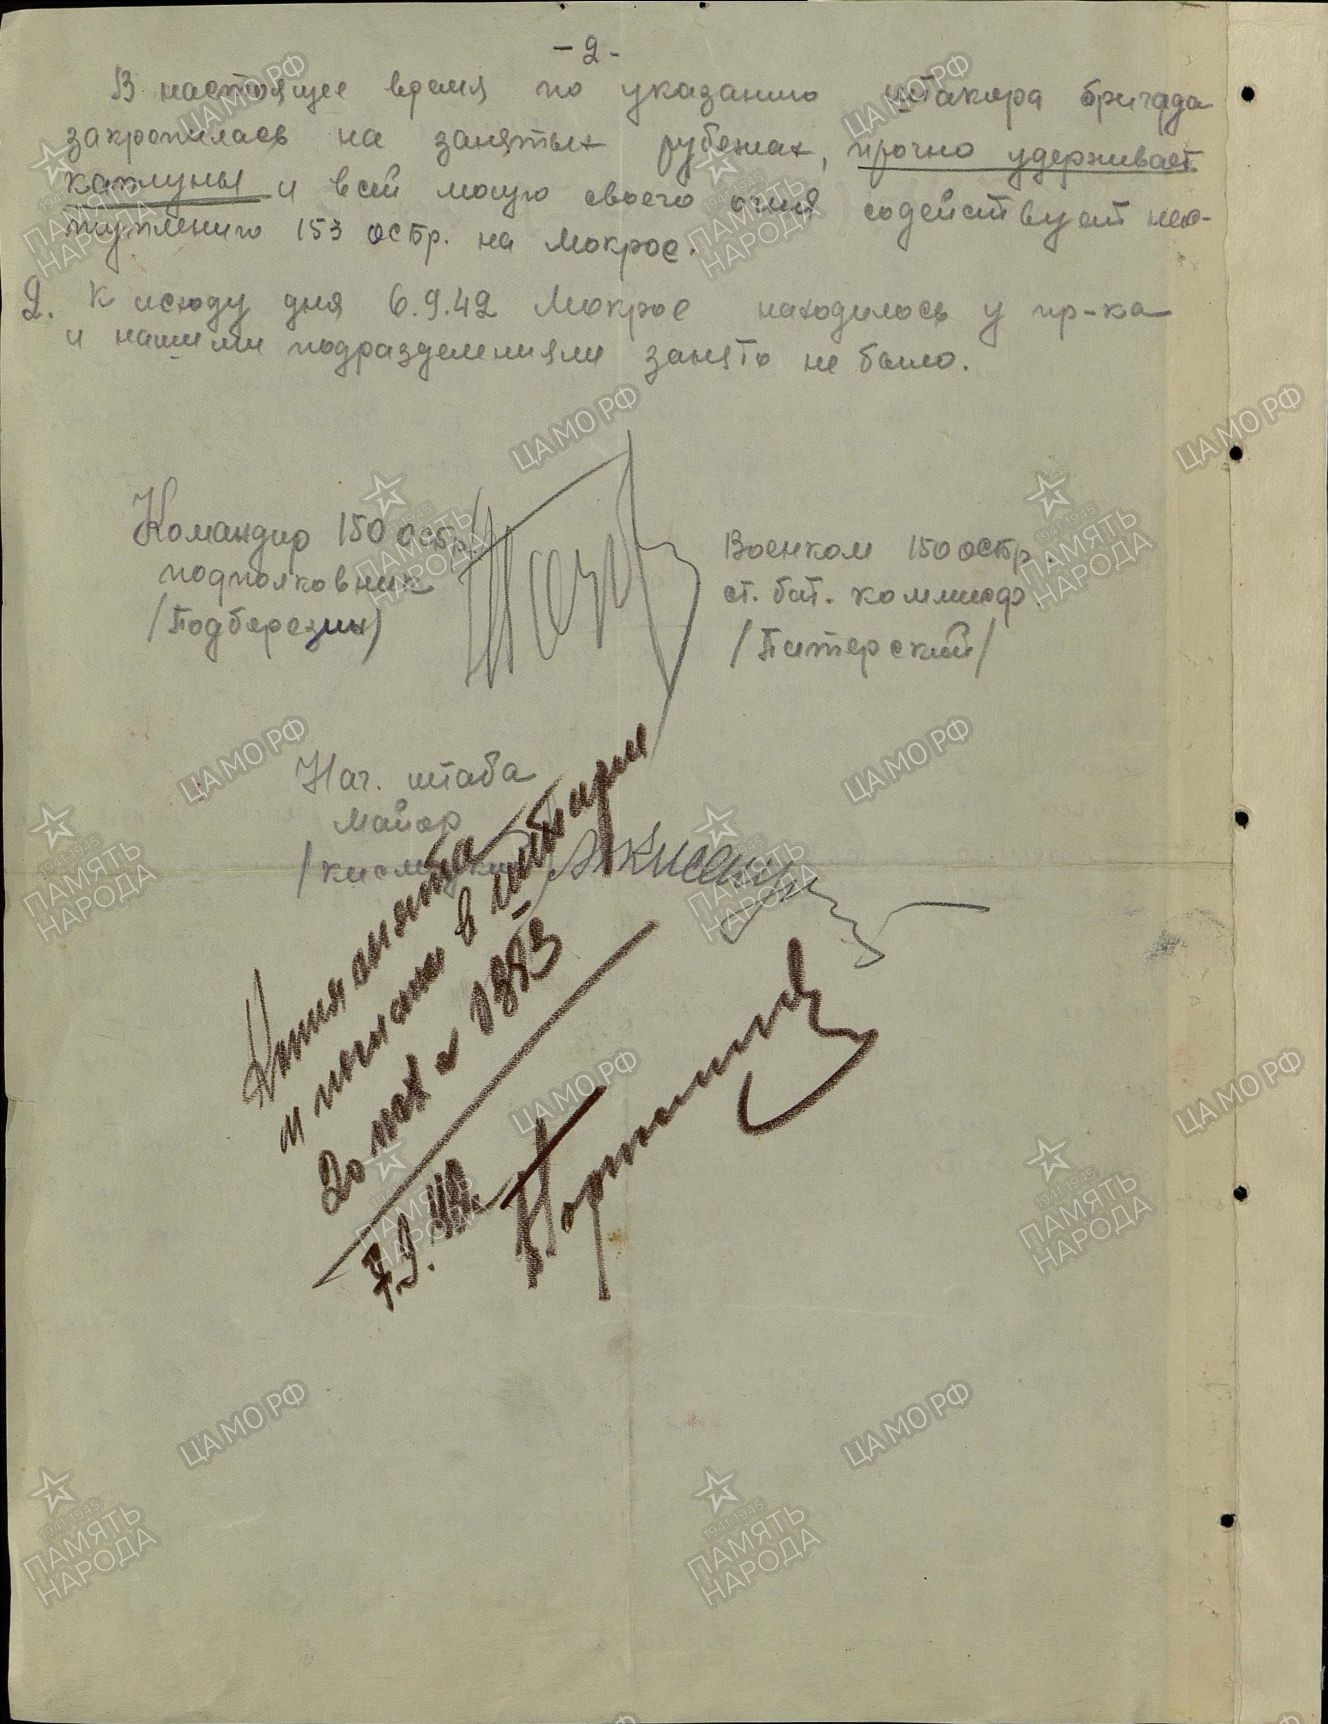 - 2 -
В настоящее время по указанию штакора бригада
закрепилась на занятых рубежах, прочно удерживает
каплуны и всей мощью своего огня содействует нас-
туплению 153 осбр. на Мокрое.
2. К исходу дня 6.9.42 Мокрое находилось у пр-ка
и нашими подразделениями занято не было.
Командир 150 осбр.
подполковник
/Подберезин/
Военком 150 осбр
ст. бат. комиссар
/Питерский/
Нач. штаба
майор
Копия снята
и послана в штарм
7.9.42.
ЦАМО РФ
1941-1945
ПАМЯТЬ
НАРОДА